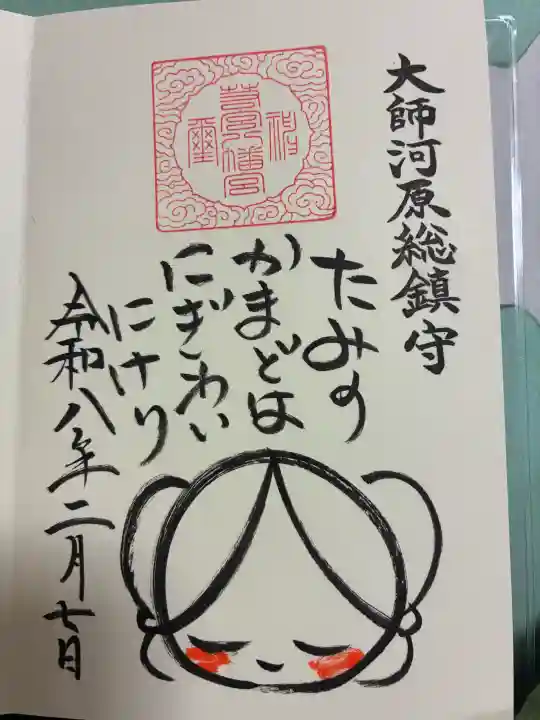 大師河原総鎮守
たみの
かまどは
にぎわい
にけり
令和八年二月七日